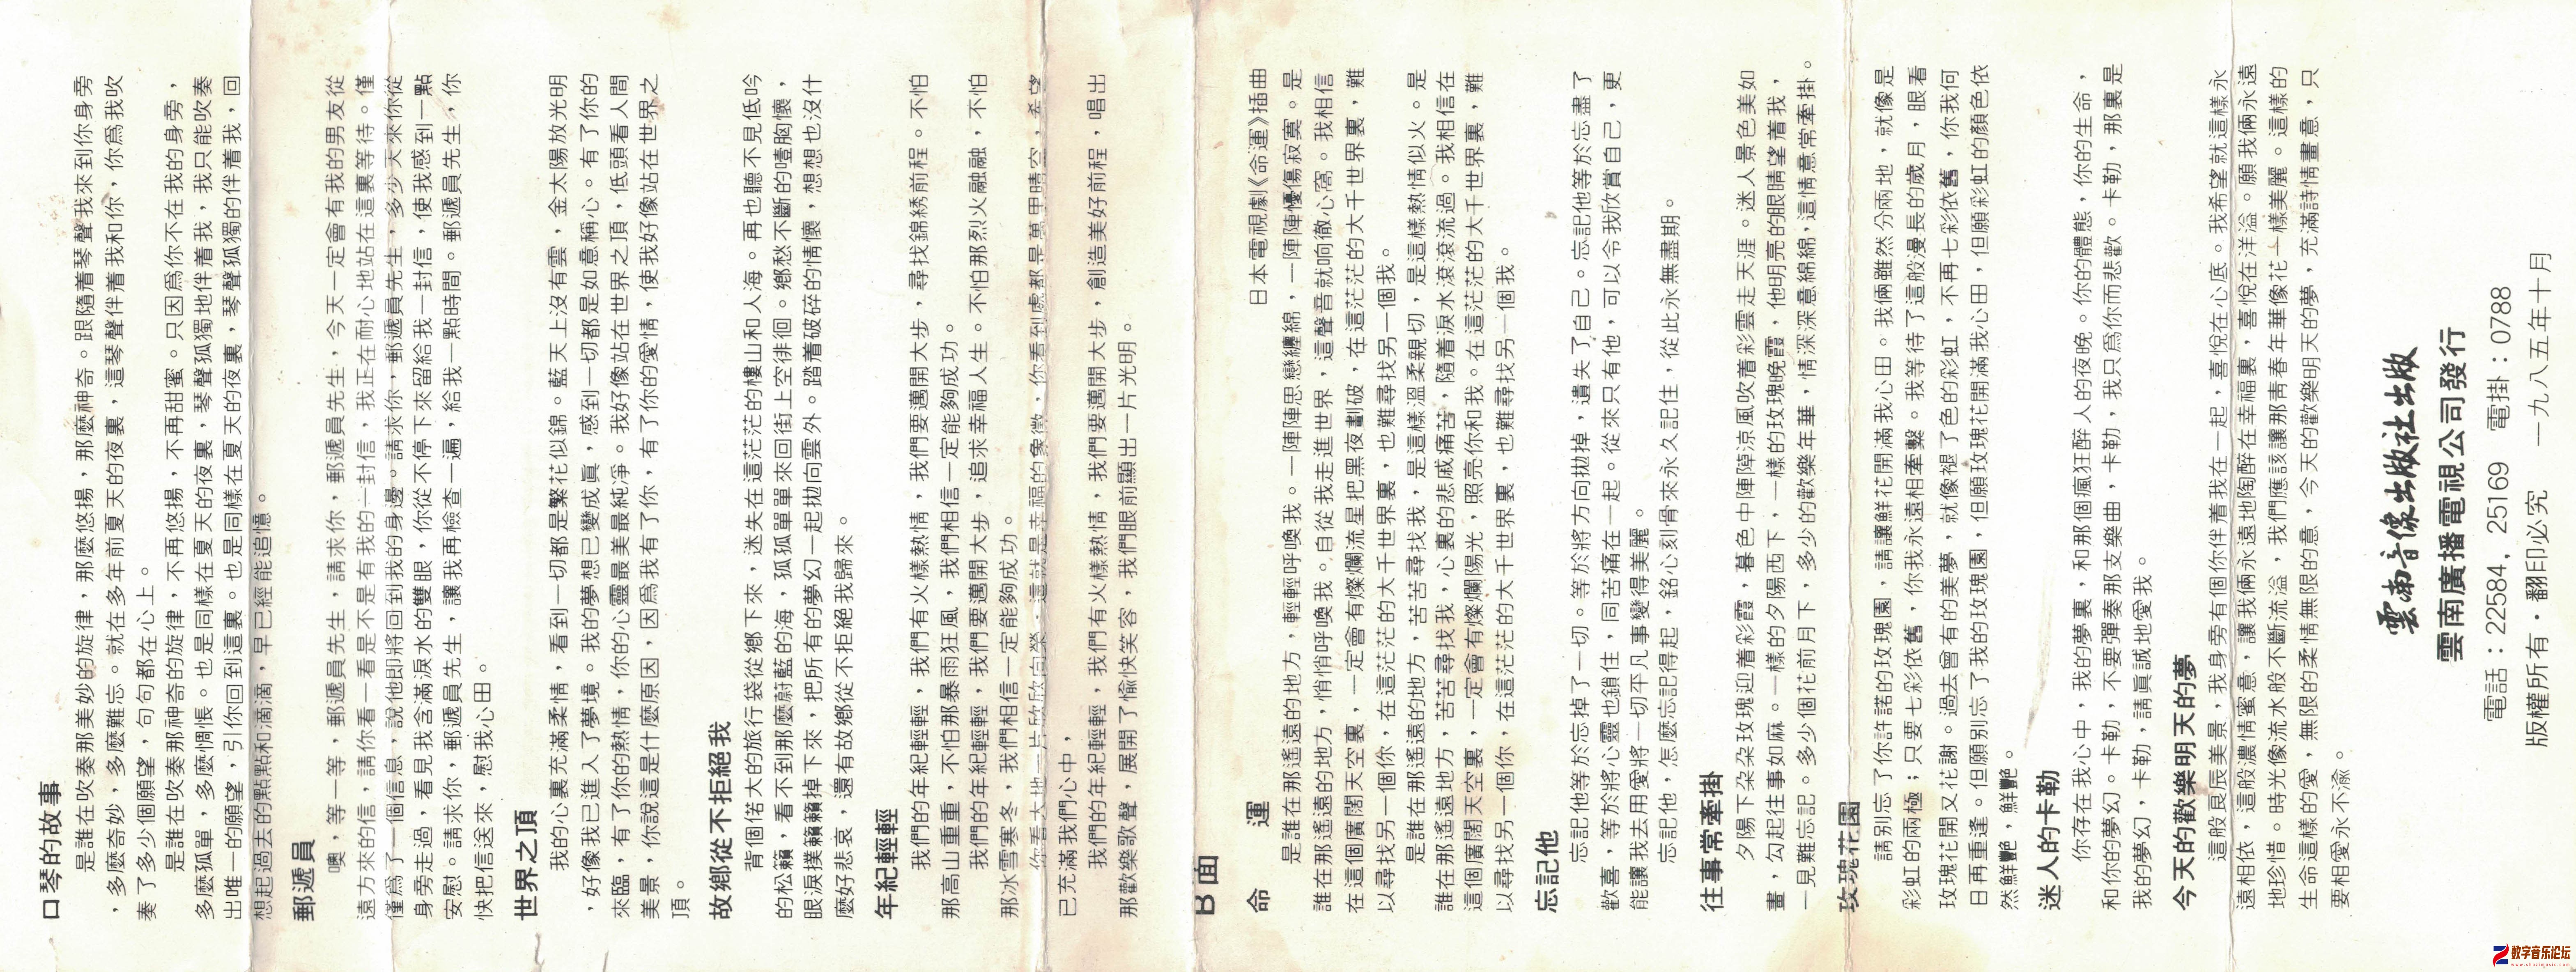 口琴的故事
是誰在吹奏那美妙的旋律，那麼悠揚，那麼神奇。跟隨着琴聲我來到你身旁
，多麼奇妙，多麼難忘。就在多年前夏天的夜裏，這琴聲伴着我和你，你爲我吹
奏了多少個願望，句句都在心上。
是誰在吹奏那神奇的旋律，不再悠揚，不再甜蜜。只因爲你不在我的身旁，
多麼孤單，多麼惆悵。也是同樣在夏天的夜裏，琴聲孤獨地伴着我，我只能吹奏
出唯一的願望，引你回到這裏。也是同樣在夏天的夜裏，琴聲孤獨的伴着我，回
想起過去的點點和滴滴，早已經能追憶。
郵遞員
噢，等一等，郵遞員先生，請求你，郵遞員先生，今天一定會有我的男友從
遠方來的信，請你看一看是不是有我的一封信，我正在耐心地站在這裏等待。僅
僅爲了一個信息，說他即將回到我的身邊。請求你，郵遞員先生，多少天來你從
身旁走過，看見我含滿淚水的雙眼，你從不停下來留給我一封信，使我感到一點
安慰。請求你，郵遞員先生，讓我再檢查一遍，給我一點時間。郵遞員先生，你
快把信送來，慰我心田。
世界之頂
我的心裏充滿柔情，看到一切都是繁花似錦。藍天上沒有雲，金太陽放光明
，好像我已進入了夢境。我的夢想已變成真，感到一切都是如意稱心。有了你的
來臨，有了你的熱情，你的心靈最美最純凈。我好像站在世界之頂，低頭看人間
美景，你說這是什麼原因，因爲我有了你，有了你的愛情，使我好像站在世界之
頂。
故鄉從不拒絕我
背個偌大的旅行袋從鄉下來，迷失在這茫茫的樓山和人海。再也聽不見低吟
的松籟，看不到那麼蔚藍的海，孤孤單單來回街上空徘徊。鄉愁不斷的噎胸懷，
眼淚撲籟籟掉下來，把所有的夢幻一起拋向雲外。踏着破碎的情懷，想想也沒什
麼好悲哀，還有故鄉從不拒絕我歸來。
年紀輕輕
我們的年紀輕輕，我們有火樣熱情，我們要邁開大步，尋找錦綉前程。不怕
那高山重重，不怕那暴雨狂風，我們相信一定能夠成功。
我們的年紀輕輕，我們要邁開大步，追求幸福人生。不怕那烈火融融，不怕
那冰雪寒冬，我們相信一定能夠成功。
你看大地一片欣欣向榮，這就是幸福的象徵，你看到處都是萬里晴空，希望
已充滿我們心中，
我們的年紀輕輕，我們有火樣熱情，我們要邁開大步，創造美好前程，唱出
那歡樂歌聲，展開了愉快笑容，我們眼前顯出一片光明。
B面
命運
日本電視劇《命運》插曲
是誰在那遙遠的地方，輕輕呼喚我。一陣陣思戀纏綿，一陣陣憂傷寂寞。是
誰在那遙遠的地方，悄悄呼喚我。自從我走進世界，這聲音就响徹心窩。我相信
在這個廣闊天空裏，一定會有燦爛流星把黑夜劃破，在這茫茫的大千世界裏，難
以尋找另一個你，在這茫茫的大千世界裏，也難尋找另一個我。
是誰在那遙遠的地方，苦苦尋找我，是這樣溫柔親切，是這樣熱情似火。是
誰在那遙遠地方，苦苦尋找我，心裏的悲戚痛苦，隨着淚水滾滾流過。我相信在
這個廣闊天空裏，一定會有燦爛陽光，照亮你和我。在這茫茫的大千世界裏，難
以尋找另一個你，在這茫茫的大千世界裏，也難尋找另一個我。
忘記他
忘記他等於忘掉了一切。等於將方向拋掉，遺失了自己。忘記他等於忘盡了
歡喜，等於將心靈也鎖住，同苦痛在一起。從來只有他，可以令我欣賞自己，更
能讓我去用愛將一切平凡事變得美麗。
忘記他，怎麼忘記得起，銘心刻骨來永久記住，從此永無盡期。
往事常牽掛
夕陽下朵朵玫瑰迎着彩霞，暮色中陣陣涼風吹着彩雲走天涯。迷人景色美如
畫，勾起往事如麻。一樣的夕陽西下，一樣的玫瑰晚霞，他明亮的眼睛望着我，
一見難忘記。多少個花前月下，多少的歡樂年華，情深深意綿綿，這情意常牽掛。
玫瑰花園
請别忘了你許諾的玫瑰園，請讓鮮花開滿我心田。我倆雖然分兩地，就像是
彩虹的兩極；只要七彩依舊，你我永遠相牽繫。我等待了這般漫長的歲月，眼看
玫瑰花開又花謝。過去曾有的美夢，就像褪了色的彩虹，不再七彩依舊，你我何
日再重逢。但願别忘了我的玫瑰園，但願玫瑰花開滿我心田，但願彩虹的顏色依
然鮮艷，鮮艷。
迷人的卡勒
你存在我心中，我的夢裏，和那個瘋狂醉人的夜晚。你的體態，你的生命，
和你的夢幻。卡勒，不要彈奏那支樂曲，卡勒，我只爲你而悲歡。卡勒，那裏是
我的夢幻，卡勒，請真誠地愛我。
今天的歡樂明天的夢
這般良辰美景，我身旁有個你伴着我在一起，喜悅在心底。我希望就這樣永
遠相依，這般濃情蜜意，讓我倆永遠地陶醉在幸福裏，喜悅在洋溢。願我倆永遠
地珍惜。時光像流水般不斷流溢，我們應該讓那青春年華像花一樣美麗。這樣的
生命這樣的愛，無限的柔情無限的意，今天的歡樂明天的夢，充滿詩情畫意，只
要相愛永不渝。
雲南音像出版社出版
雲南廣播電視公司發行
電話：22584，25169　電掛：0788
版權所有・翻印必究　一九八五年十月
数字音乐论坛